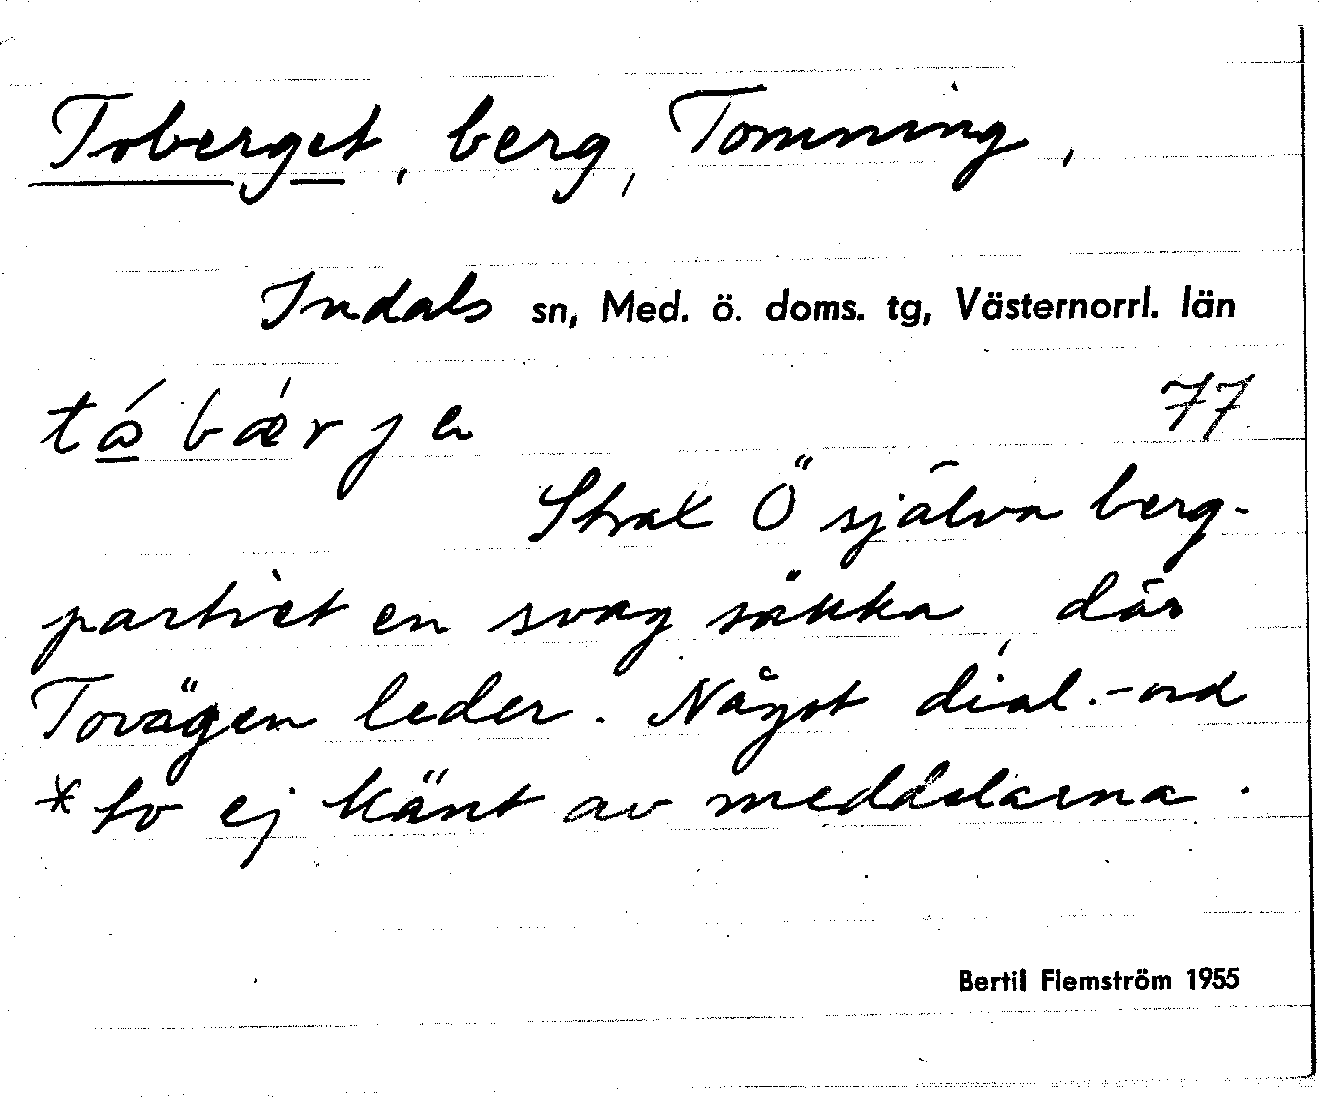 Toberget, berg, Tomming,
Indals sn, Med. ö. doms. tg, Västernorrl. län
77
Strax Ö själva berg-
partiet en svag sänka, där
Tovägen leder. Något dial.-ord
*to ej känt av meddelarna.
Bertil Flemström 1955